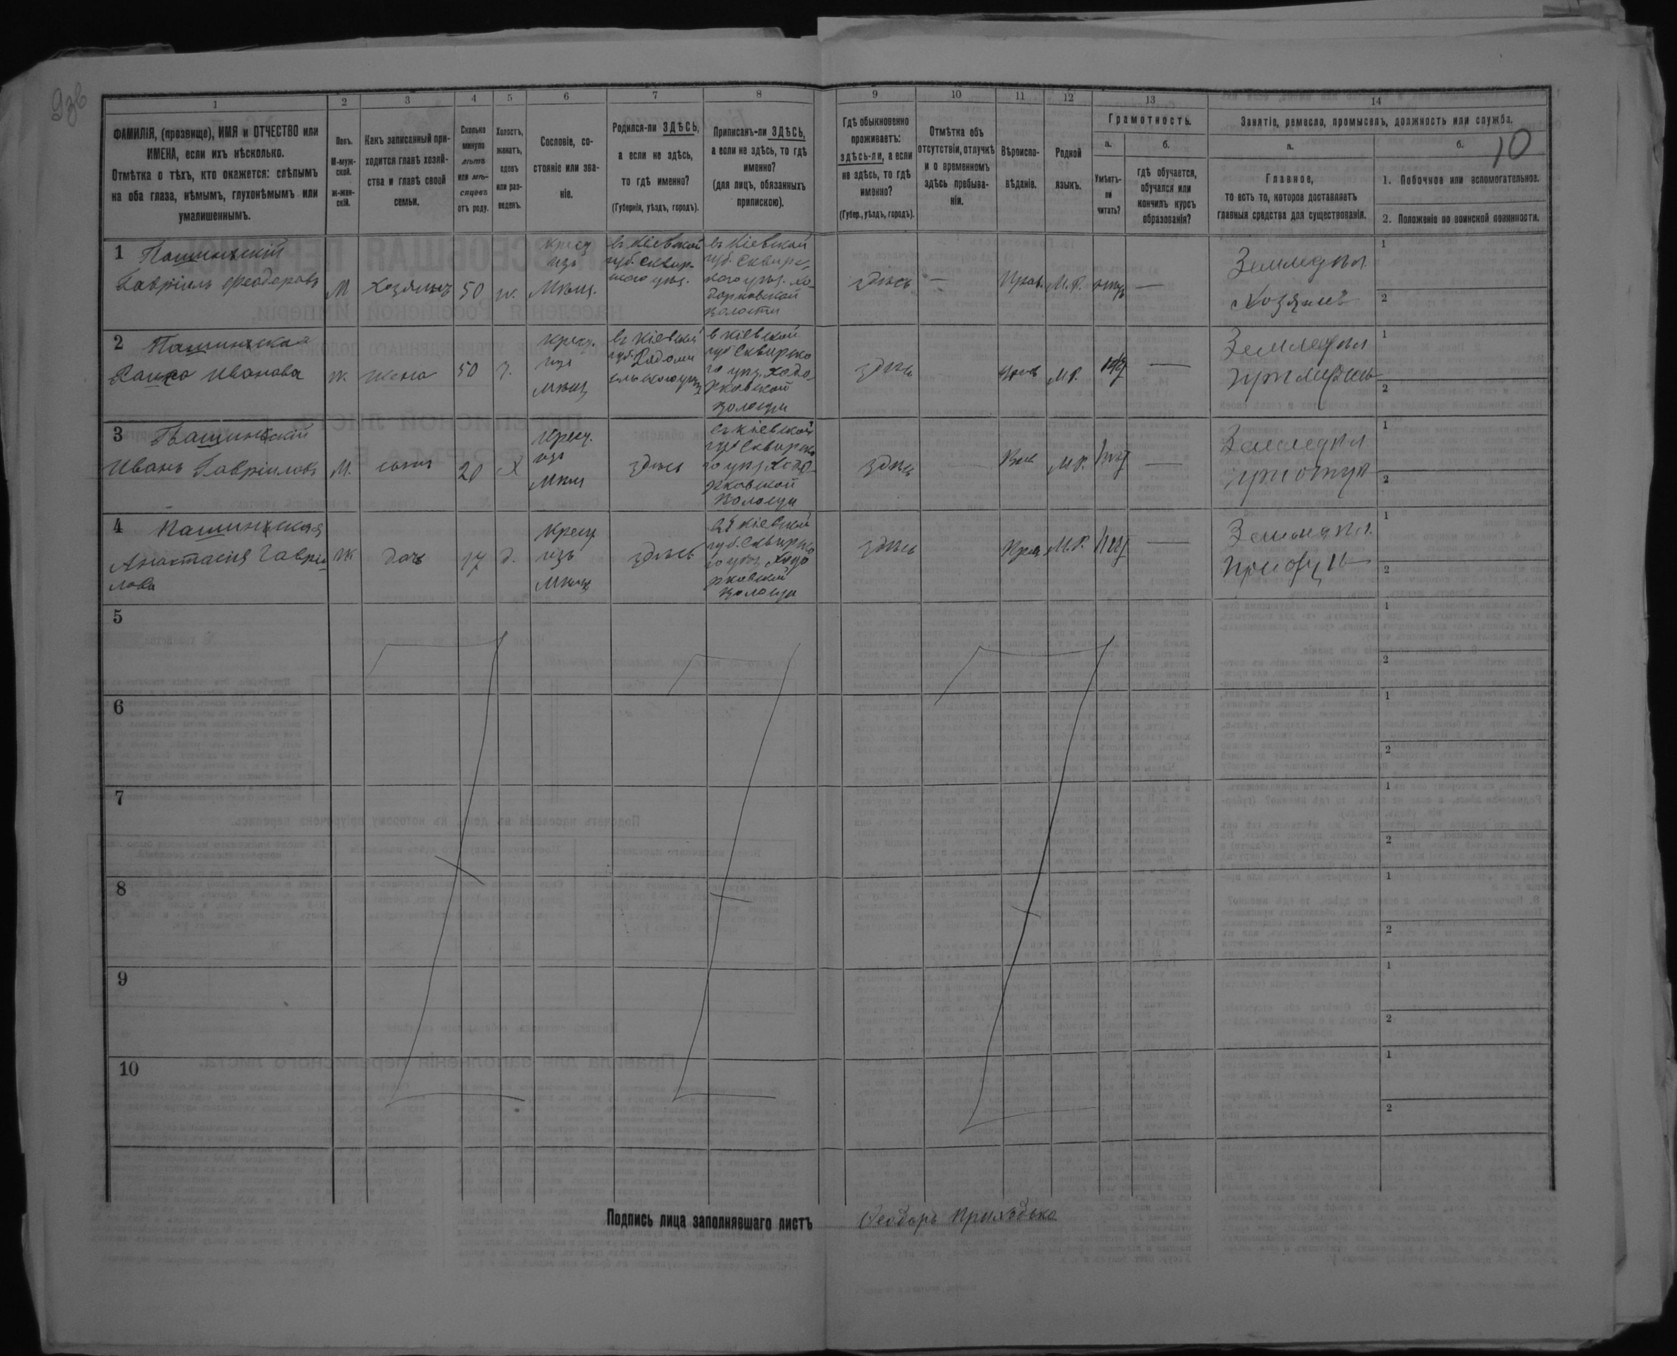 1
2
3
4
5
6
7
8
9
10
11
12
13
14
ФАМИЛІЯ, (прозвище), ИМЯ и ОТЧЕСТВО или
ИМЕНА, если ихъ нѣсколько.
Отмѣтка о тѣхъ, кто окажется: слѣпымъ
на оба глаза, нѣмымъ, глухонѣмымъ или
умалишеннымъ.
Полъ.
М-муж-
ской.
Ж-жен-
скій.
Какъ записанный при-
ходится главѣ хозяй-
ства и главѣ своей
семьи.
Сколько
минуло
лѣтъ
или мѣ-
сяцевъ
отъ роду.
Холостъ,
женатъ,
вдовъ
или раз-
веденъ.
Сословіе, со-
стояніе или зва-
ніе.
Родился-ли ЗДѢСЬ,
а если не здѣсь,
то гдѣ именно?
(Губернія, уѣздъ, городъ).
Приписанъ-ли ЗДѢСЬ,
а если не здѣсь, то гдѣ
именно?
(для лицъ, обязанныхъ
припискою).
Гдѣ обыкновенно
проживаетъ:
здѣсь-ли, а если
не здѣсь, то гдѣ
именно?
(Губер., уѣздъ, городъ).
Отмѣтка объ
отсутствіи, отлучкѣ
и о временномъ
здѣсь пребыва-
ніи.
Вѣроиспо-
вѣданіе.
Родной
языкъ.
Грамотность.
а.
Умѣетъ-
ли
читать?
б.
гдѣ обучается,
обучался или
кончилъ курсъ
образованія?
Занятіе, ремесло, промыселъ, должность или служба.
а.
Главное,
то есть то, которое доставляетъ
главныя средства для существованія.
б.
10
1. Побочное или вспомогательное.
2. Положеніе по воинской повинности.
1 Пашинскій
Гавріилъ Феодоровъ
М
Хозяинъ
50
ж.
Крест.
изъ
Мѣщ.
въ Кіевской
губ. Сквир-
скаго уѣз.
въ Кіевской
губ. Сквирс-
каго уѣз. Хо-
дорковской
волости
здѣсь
—
Прав.
М.Р.
—
Земледѣл
Хозяинъ
1
2
2 Пашинская
Ивановна
ж.
жена
50
з.
Крест.
изъ
Мѣщ
въ Кіевской
губ. Радомы
сльскаго уѣз
в Кіевской
губ Сквирско
го уѣз. Ходо
рковской
волости
здѣсь
М.Р.
—
Земледѣл
1
2
3 Пашинскій
Иванъ Гавріиловъ
М.
сынъ
20
Х
Крест.
изъ
Мѣщ
здѣсь
въ Кіевской
губ Сквирско
го уѣз. Ходо-
рковской
волости
здѣсь
М.Р.
—
Земледѣл
1
2
4 Пашинская
Анастасія Гавріи
лова
Ж
дочь
17
д.
Крест
изъ
Мѣщ
здѣсь
въ Кіевской
губ. Сквирско
го уѣз. Ходо
рковской
волости
здѣсь
М.Р.
—
Земледѣл
1
2
5
1
2
6
1
2
7
1
2
8
1
2
9
1
2
10
1
2
Подпись лица заполнявшаго листъ Феодоръ Прилѣдько